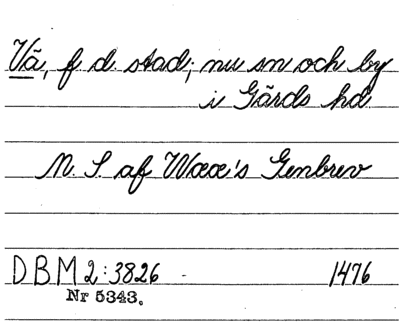 Vä, f d. stad; nu sn och by
i Gärds hd
N. S. af Wææ's Genbrev
DBM 2:3826 - 1476
Nr 5343.